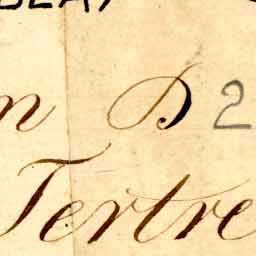 n D 2
Tertre